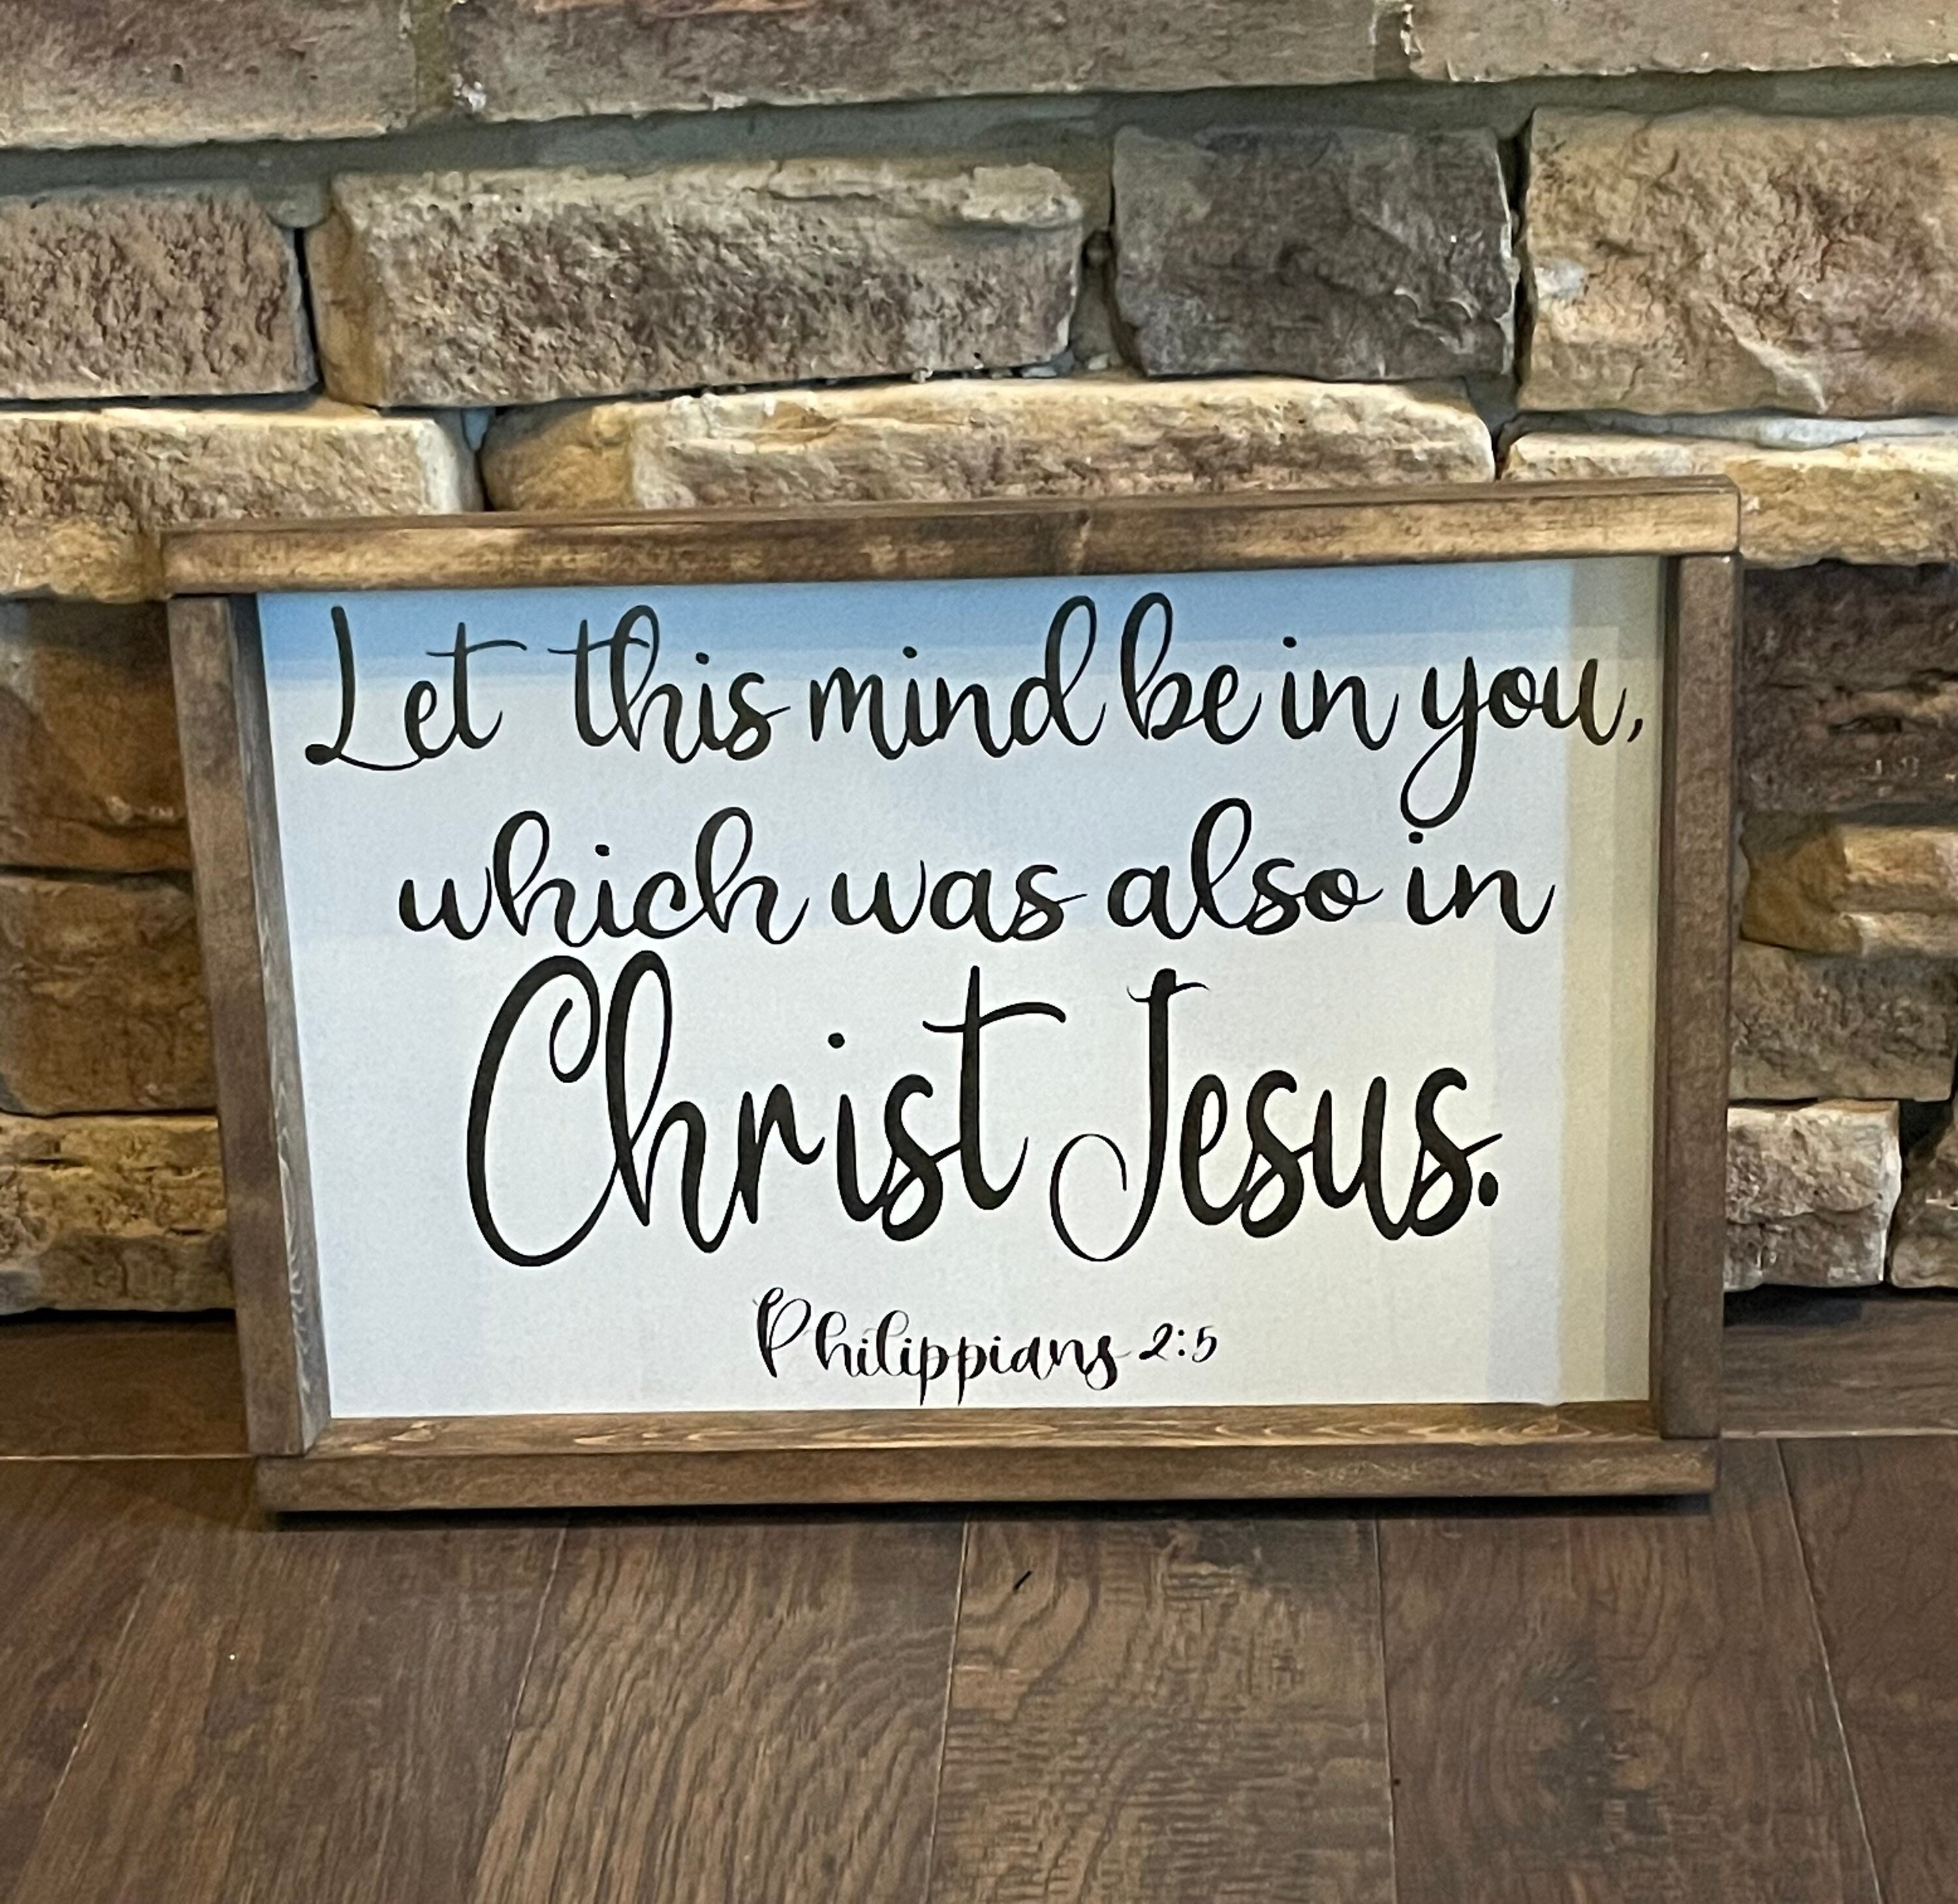 Let this mind be in you,
which was also in
Christ Jesus.
Philippians 2:5